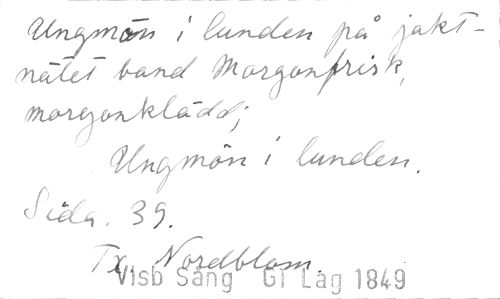 Ungmön i lunden på jakt-
nätet band Morgonfrisk,
morgonklädd;
Ungmön i lunden.
Sida. 39.
Tx. Nordblom.
Visb Sång Gl Lag 1849